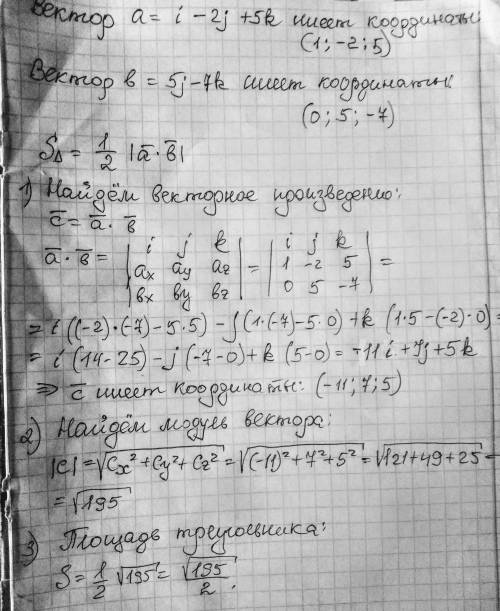 Вектор a = i - 2j + 5k имеет координаты
(1; -2; 5)
Вектор в = 5j - 7k имеет координаты
(0; 5; -7)
S∆ = 1/2 |a̅ · в̅|
1) Найдём векторное произведению:
c̅ = a̅ · в̅
a̅ · в̅ = | i j k | = | i j k | =
| ax ay az | | 1 -2 5 |
| вx вy вz | | 0 5 -7 |
= i ((-2)·(-7) - 5·5) - j (1·(-7) - 5·0) + k (1·5 - (-2)·0) =
= i (14 - 25) - j (-7 - 0) + k (5 - 0) = -11i + 7j + 5k
⇒ c̅ имеет координаты: (-11; 7; 5)
2) Найдём модуль вектора:
|c| = √(cx² + cy² + cz²) = √((-11)² + 7² + 5²) = √(121 + 49 + 25) =
= √195
3) Площадь треугольника:
S = 1/2 √195 = √195/2.